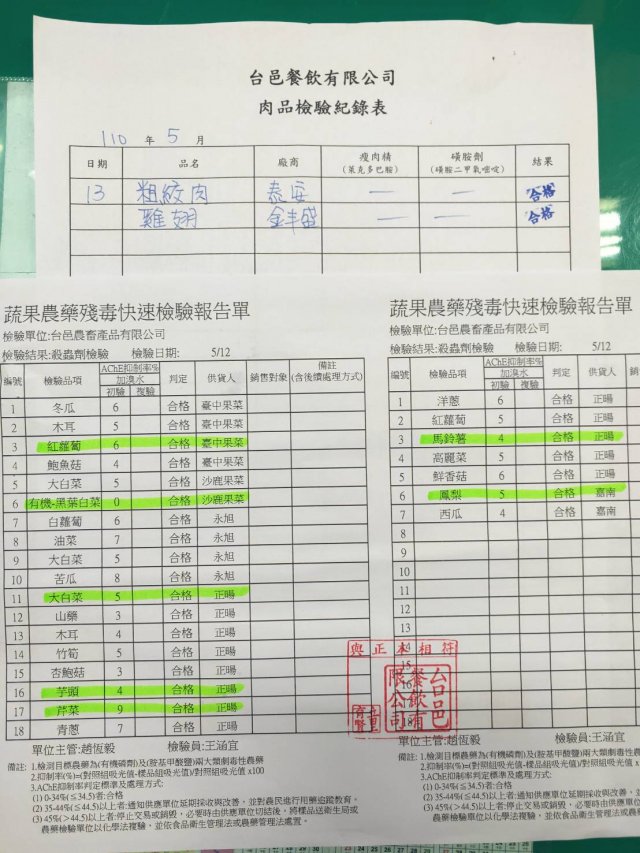 台邑餐飲有限公司
肉品檢驗紀錄表
110 年 5 月
日期 品名 廠商 瘦肉精(萊克多巴胺) 磺胺劑(磺胺二甲氧嘧啶) 結果
13 粗絞肉 泰安 — — 合格
雞翅 金丰盛 — — 合格
蔬果農藥殘毒快速檢驗報告單
檢驗單位:台邑農畜產品有限公司
檢驗結果:殺蟲劑檢驗 檢驗日期: 5/12
編號 檢驗品項 AChE抑制率% 加溴水 初驗 複驗 判定 供貨人 銷售對象 備註(含後續處理方式)
1 冬瓜 6 合格 臺中果菜
2 木耳 5 合格 臺中果菜
3 紅蘿蔔 6 合格 臺中果菜
4 鮑魚菇 4 合格 臺中果菜
5 大白菜 5 合格 沙鹿果菜
6 有機-黑葉白菜 0 合格 沙鹿果菜
7 白蘿蔔 6 合格 永旭
8 油菜 7 合格 永旭
9 大白菜 5 合格 永旭
10 苦瓜 8 合格 永旭
11 大白菜 5 合格 正暘
12 山藥 3 合格 正暘
13 木耳 4 合格 正暘
14 竹筍 5 合格 正暘
15 杏鮑菇 3 合格 正暘
16 芋頭 4 合格 正暘
17 芹菜 9 合格 正暘
18 青蔥 7 合格 正暘
單位主管:趙恆毅 檢驗員:王涵宜
備註: 1.檢測目標農藥為(有機磷劑)及(胺基甲酸鹽)兩大類劇毒性農藥
2.抑制率(%)=(對照組吸光值-樣品組吸光值)/對照組吸光值 x100
3.AChE抑制率判定標準及處理方式:
(1) 0-34%(≤34.5)者:合格
(2) 35-44%(≤44.5)以上者:通知供應單位延期採收與改善，並對農民進行用藥追蹤教育。
(3) 45%(>44.5)以上者:停止交易或銷毀，必要時由供應單位切結後，將樣品送衛生局或
農藥檢驗單位以化學法複驗，並依食品衛生管理法或農藥管理法處置。
蔬果農藥殘毒快速檢驗報告單
檢驗單位:台邑農畜產品有限公司
檢驗結果:殺蟲劑檢驗 檢驗日期: 5/12
編號 檢驗品項 AChE抑制率% 加溴水 初驗 複驗 判定 供貨人
1 洋蔥 6 合格 正暘
2 紅蘿蔔 5 合格 正暘
3 馬鈴薯 4 合格 正暘
4 高麗菜 5 合格 正暘
5 鮮香菇 6 合格 正暘
6 鳳梨 5 合格 嘉南
7 西瓜 4 合格 嘉南
8
9
10
11
12
13
14
15
16
17
18
與正本相符
台邑餐飲有限公司
王涵宜
1.檢測目標農藥為(有機磷劑)及(胺基甲酸鹽)兩大類劇毒性
2.抑制率(%)=(對照組吸光值-樣品組吸光值)/對照組吸光值
3.AChE抑制率判定標準及處理方式:
(1) 0-34%(≤34.5)者:合格
(2) 35-44%(≤44.5)以上者:通知供應單位延期採收與改善
(3) 45%(>44.5)以上者:停止交易或銷毀，必要時由供應單
農藥檢驗單位以化學法複驗，並依食品衛生管理法或